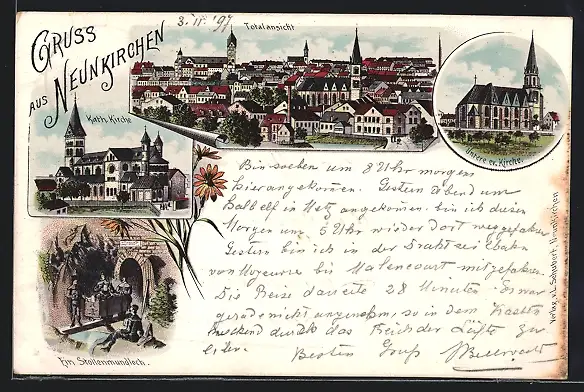 3. II. 97
Gruss
aus Neunkirchen
Totalansicht
Kath. Kirche
Untere ev. Kirche.
Ein Stollenmundloch.
Bin soeben um 8 Uhr morgens
hier angekommen. Gestern Abend um
halb elf in Metz angekommen bin ich diesen
Morgen um 5 Uhr wieder dort weggefahren
Gestern bin ich in der Drahtseilbahn
von Moyeuvre bis Malancourt mitgefahren.
Die Reise dauerte 28 Minuten. Es war
gerade nicht angenehm so in dem Kasten
sitzend durch das Reich der Lüfte zu
Besten Gruß
Verlag v. L. Schubert, Neunkirchen